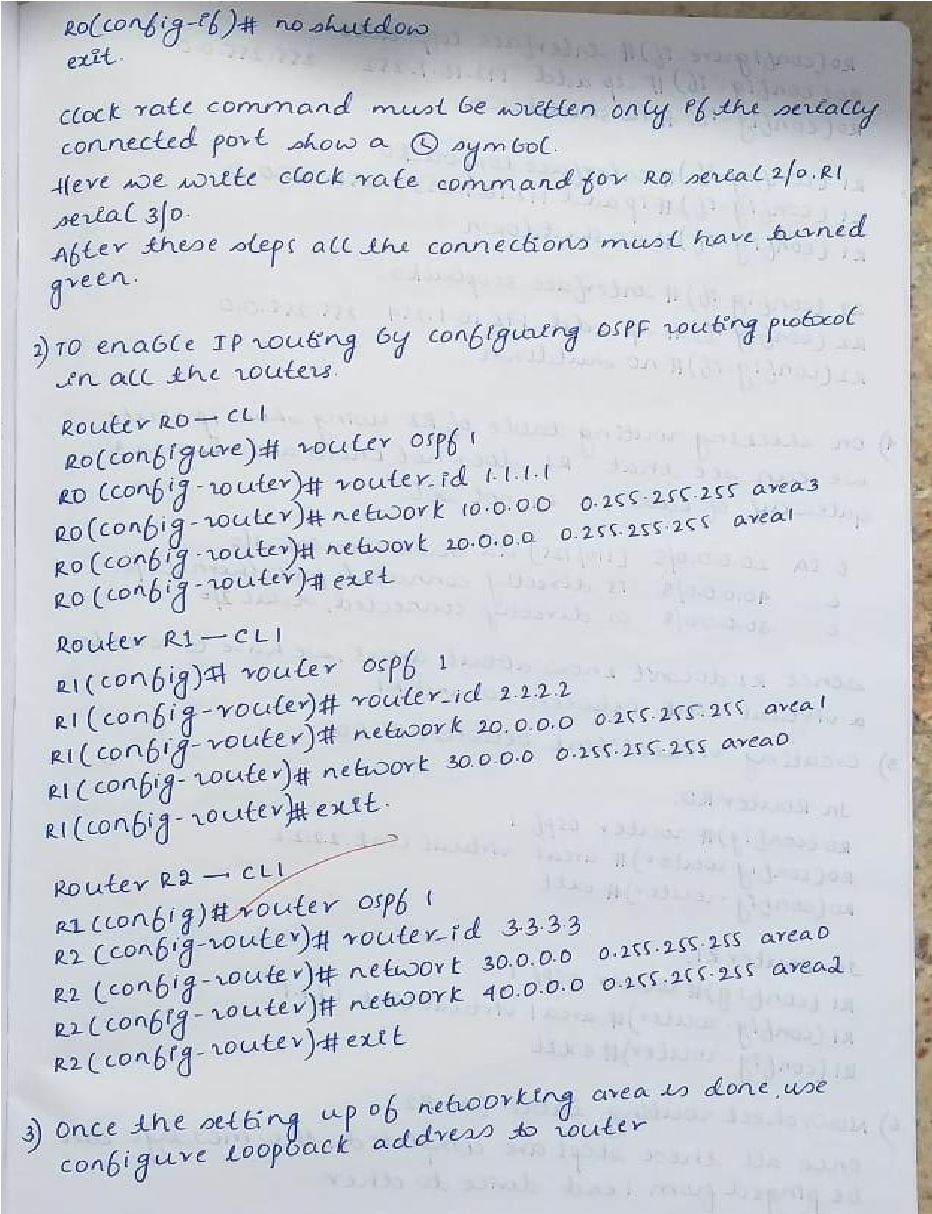 R0(config-if)# no shutdow
exit.
clock rate command must be written only if the serially
connected port show a symbol.
Here we write clock rate command for R0 serial 2/0. R1
serial 3/0.
After these steps all the connections must have turned
green.
2) TO enable IP routing by configuring OSPF routing protocol
in all the routers.
Router R0 — CLI
R0(configure)# router ospf 1
R0 (config-router)# router-id 1.1.1.1
R0(config-router)# network 10.0.0.0 0.255.255.255 area3
R0(config-router)# network 20.0.0.0 0.255.255.255 area1
R0(config-router)# exit
Router R1 — CLI
R1(config)# router ospf 1
R1(config-router)# router-id 2.2.2.2
R1(config-router)# network 20.0.0.0 0.255.255.255 area1
R1(config-router)# network 30.0.0.0 0.255.255.255 area0
R1(config-router)# exit.
Router R2 — CLI
R2(config)# router ospf 1
R2(config-router)# router-id 3.3.3.3
R2 (config-router)# network 30.0.0.0 0.255.255.255 area0
R2(config-router)# network 40.0.0.0 0.255.255.255 area2
R2(config-router)# exit
3) Once the setting up of networking area is done, use
configure loopback address to router